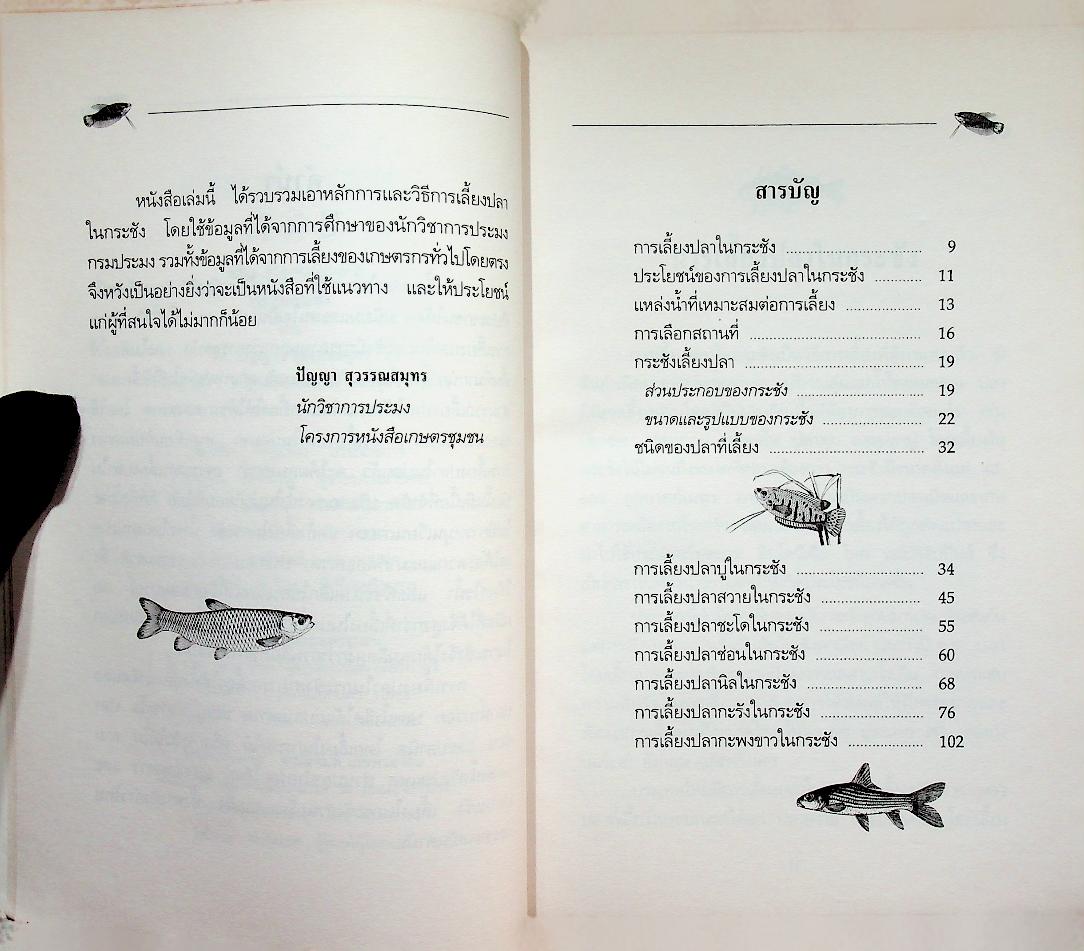 หนังสือเล่มนี้ ได้รวบรวมเอาหลักการและวิธีการเลี้ยงปลา
ในกระชัง โดยใช้ข้อมูลที่ได้จากการศึกษาของนักวิชาการประมง
กรมประมง รวมทั้งข้อมูลที่ได้จากการเลี้ยงของเกษตรกรทั่วไปโดยตรง
จึงหวังเป็นอย่างยิ่งว่าจะเป็นหนังสือที่ใช้แนวทาง และให้ประโยชน์
แก่ผู้ที่สนใจได้ไม่มากก็น้อย
ปัญญา สุวรรณสมุทร
นักวิชาการประมง
โครงการหนังสือเกษตรชุมชน
สารบัญ
การเลี้ยงปลาในกระชัง ........................... 9
ประโยชน์ของการเลี้ยงปลาในกระชัง ............ 11
แหล่งน้ำที่เหมาะสมต่อการเลี้ยง ................... 13
การเลือกสถานที่ ........................................ 16
กระชังเลี้ยงปลา ......................................... 19
ส่วนประกอบของกระชัง ........................... 19
ขนาดและรูปแบบของกระชัง ..................... 22
ชนิดของปลาที่เลี้ยง ................................... 32
การเลี้ยงปลาบู่ในกระชัง ............................ 34
การเลี้ยงปลาสวายในกระชัง ...................... 45
การเลี้ยงปลาชะโดในกระชัง ....................... 55
การเลี้ยงปลาช่อนในกระชัง ........................ 60
การเลี้ยงปลานิลในกระชัง .......................... 68
การเลี้ยงปลากะรังในกระชัง ....................... 76
การเลี้ยงปลากะพงขาวในกระชัง ................ 102